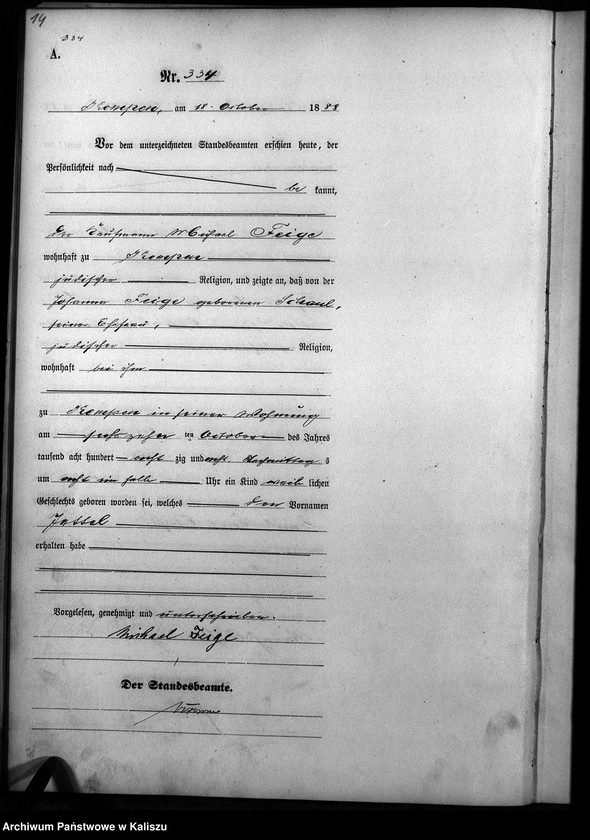 19
334
A.
Nr. 334
Kempen, am 18. October 1888
Vor dem unterzeichneten Standesbeamten erschien heute, der
Persönlichkeit nach
be kannt,
der Kaufmann Michael Feige
wohnhaft zu Kempen
jüdischer Religion, und zeigte an, daß von der
Johanna Feige geborenen
seiner Ehefrau,
jüdischer Religion,
wohnhaft bei ihm
zu Kempen in seiner Wohnung
am sechszehn ten October des Jahres
tausend acht hundert acht zig und acht Nachmittag s
um acht ein halb Uhr ein Kind weib lichen
Geschlechts geboren worden sei, welches den Vornamen
erhalten habe
Vorgelesen, genehmigt und unterschrieben.
Michael Feige
Der Standesbeamte.
Archiwum Państwowe w Kaliszu